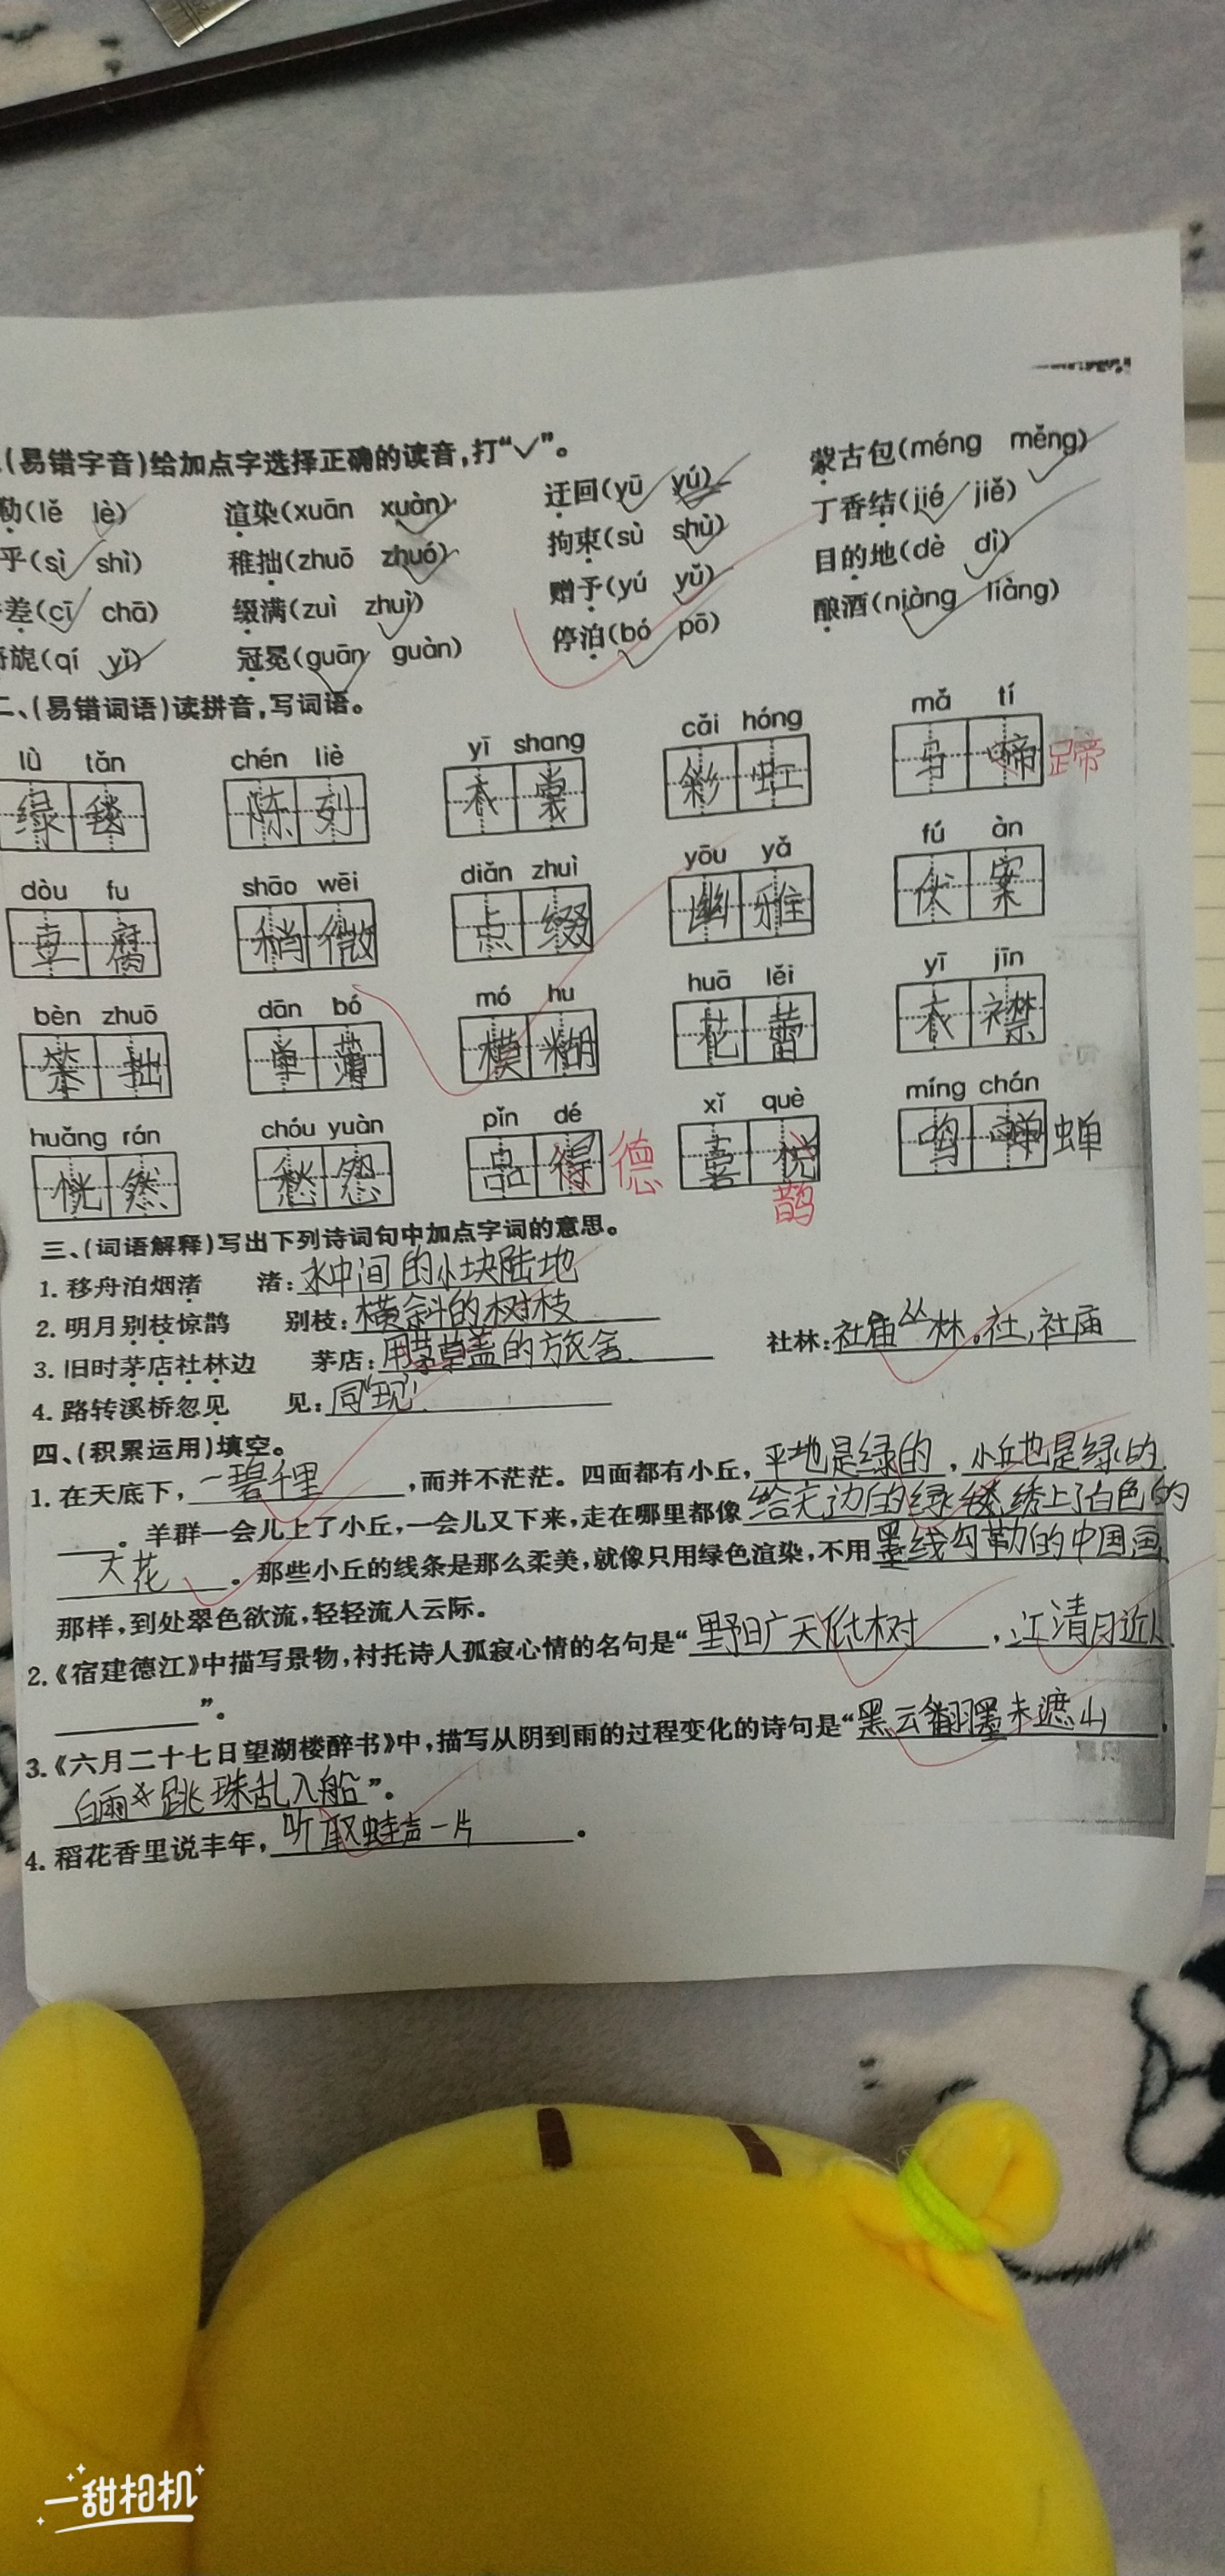 (易错字音)给加点字选择正确的读音,打“✓”。
勒(lě lè) 渲染(xuān xuàn) 迂回(yū yú) 蒙古包(méng měng)
乎(sì shì) 稚拙(zhuō zhuó) 拘束(sù shù) 丁香结(jié jiě)
差(cī chā) 缀满(zuì zhuì) 赠予(yú yǔ) 目的地(dè dì)
旎(qí yǐ) 冠冕(guān guàn) 停泊(bó pō) 酿酒(niàng liàng)
二、(易错词语)读拼音,写词语。
lǜ tǎn chén liè yī shang cǎi hóng mǎ tí
绿毯 陈列 衣裳 彩虹 马啼 蹄
dòu fu shāo wēi diǎn zhuì yōu yǎ fú àn
豆腐 稍微 点缀 幽雅 伏案
bèn zhuō dān bó mó hu huā lěi yī jīn
笨拙 单薄 模糊 花蕾 衣襟
huǎng rán chóu yuàn pǐn dé xǐ què míng chán
恍然 愁怨 品得 德 喜悦 鹊 鸣 蝉
三、(词语解释)写出下列诗词句中加点字词的意思。
1. 移舟泊烟渚 渚:水中间的小块陆地
2. 明月别枝惊鹊 别枝:横斜的树枝
3. 旧时茅店社林边 茅店:用茅草盖的旅舍. 社林:社庙丛林。社,社庙
4. 路转溪桥忽见 见:同“现”.
四、(积累运用)填空。
1. 在天底下,一碧千里,而并不茫茫。四面都有小丘,平地是绿的,小丘也是绿的
。羊群一会儿上了小丘,一会儿又下来,走在哪里都像给无边的绿毯绣上了白色的
大花。那些小丘的线条是那么柔美,就像只用绿色渲染,不用墨线勾勒的中国画
那样,到处翠色欲流,轻轻流入云际。
2.《宿建德江》中描写景物,衬托诗人孤寂心情的名句是“野旷天低树,江清月近人
”。
3.《六月二十七日望湖楼醉书》中,描写从阴到雨的过程变化的诗句是“黑云翻墨未遮山,
白雨跳珠乱入船”。
4. 稻花香里说丰年,听取蛙声一片。
一甜相机